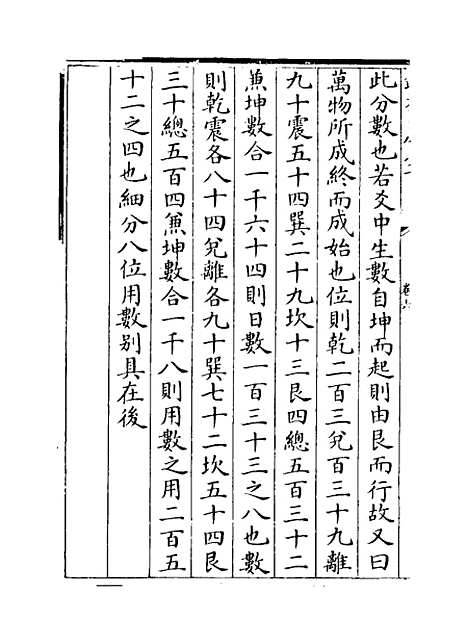 此分數也若爻中生數自坤而起則由艮而行故又曰
萬物所成終而成始也位則乾二百三兌百三十九離
九十震五十四巽二十九坎十三艮四總五百三十二
兼坤數合一千六十四則日數一百三十三之八也數
則乾震各八十四兌離各九十巽七十二坎五十四艮
三十總五百四兼坤數合一千八則用數之用二百五
十二之四也細分八位用數別具在後
卷六